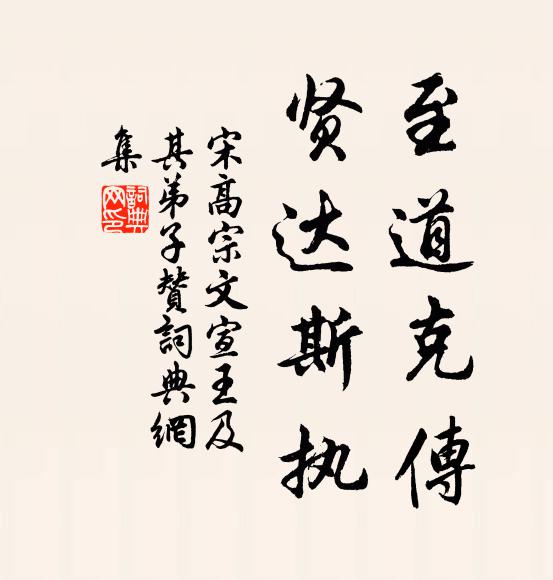 至道克傳
贤达斯执
宋高宗文宣王及
其弟子贊詞典網
集
詞典網印